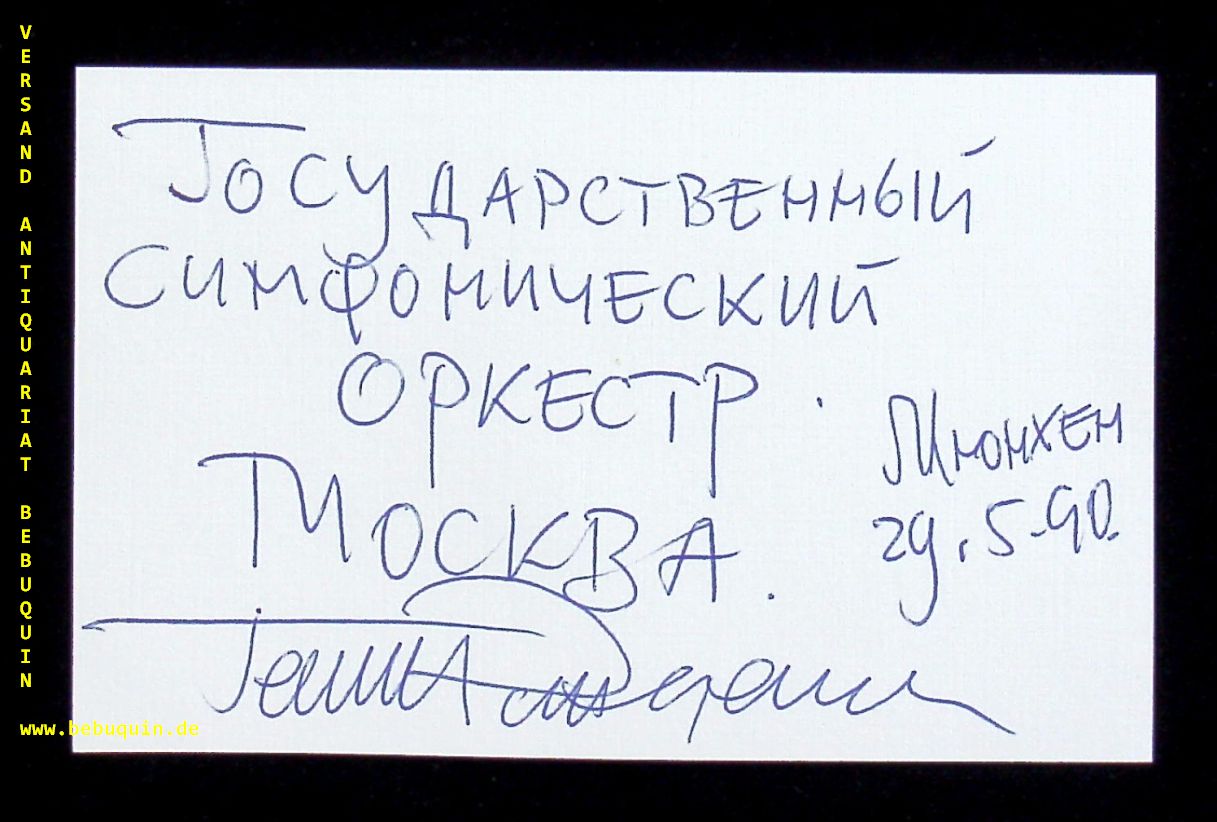 VERSAND ANTIQUARIAT BEBUQUIN
Государственный
симфонический
оркестр.
Москва.
Мюнхен
29.5.90.
www.bebuquin.de